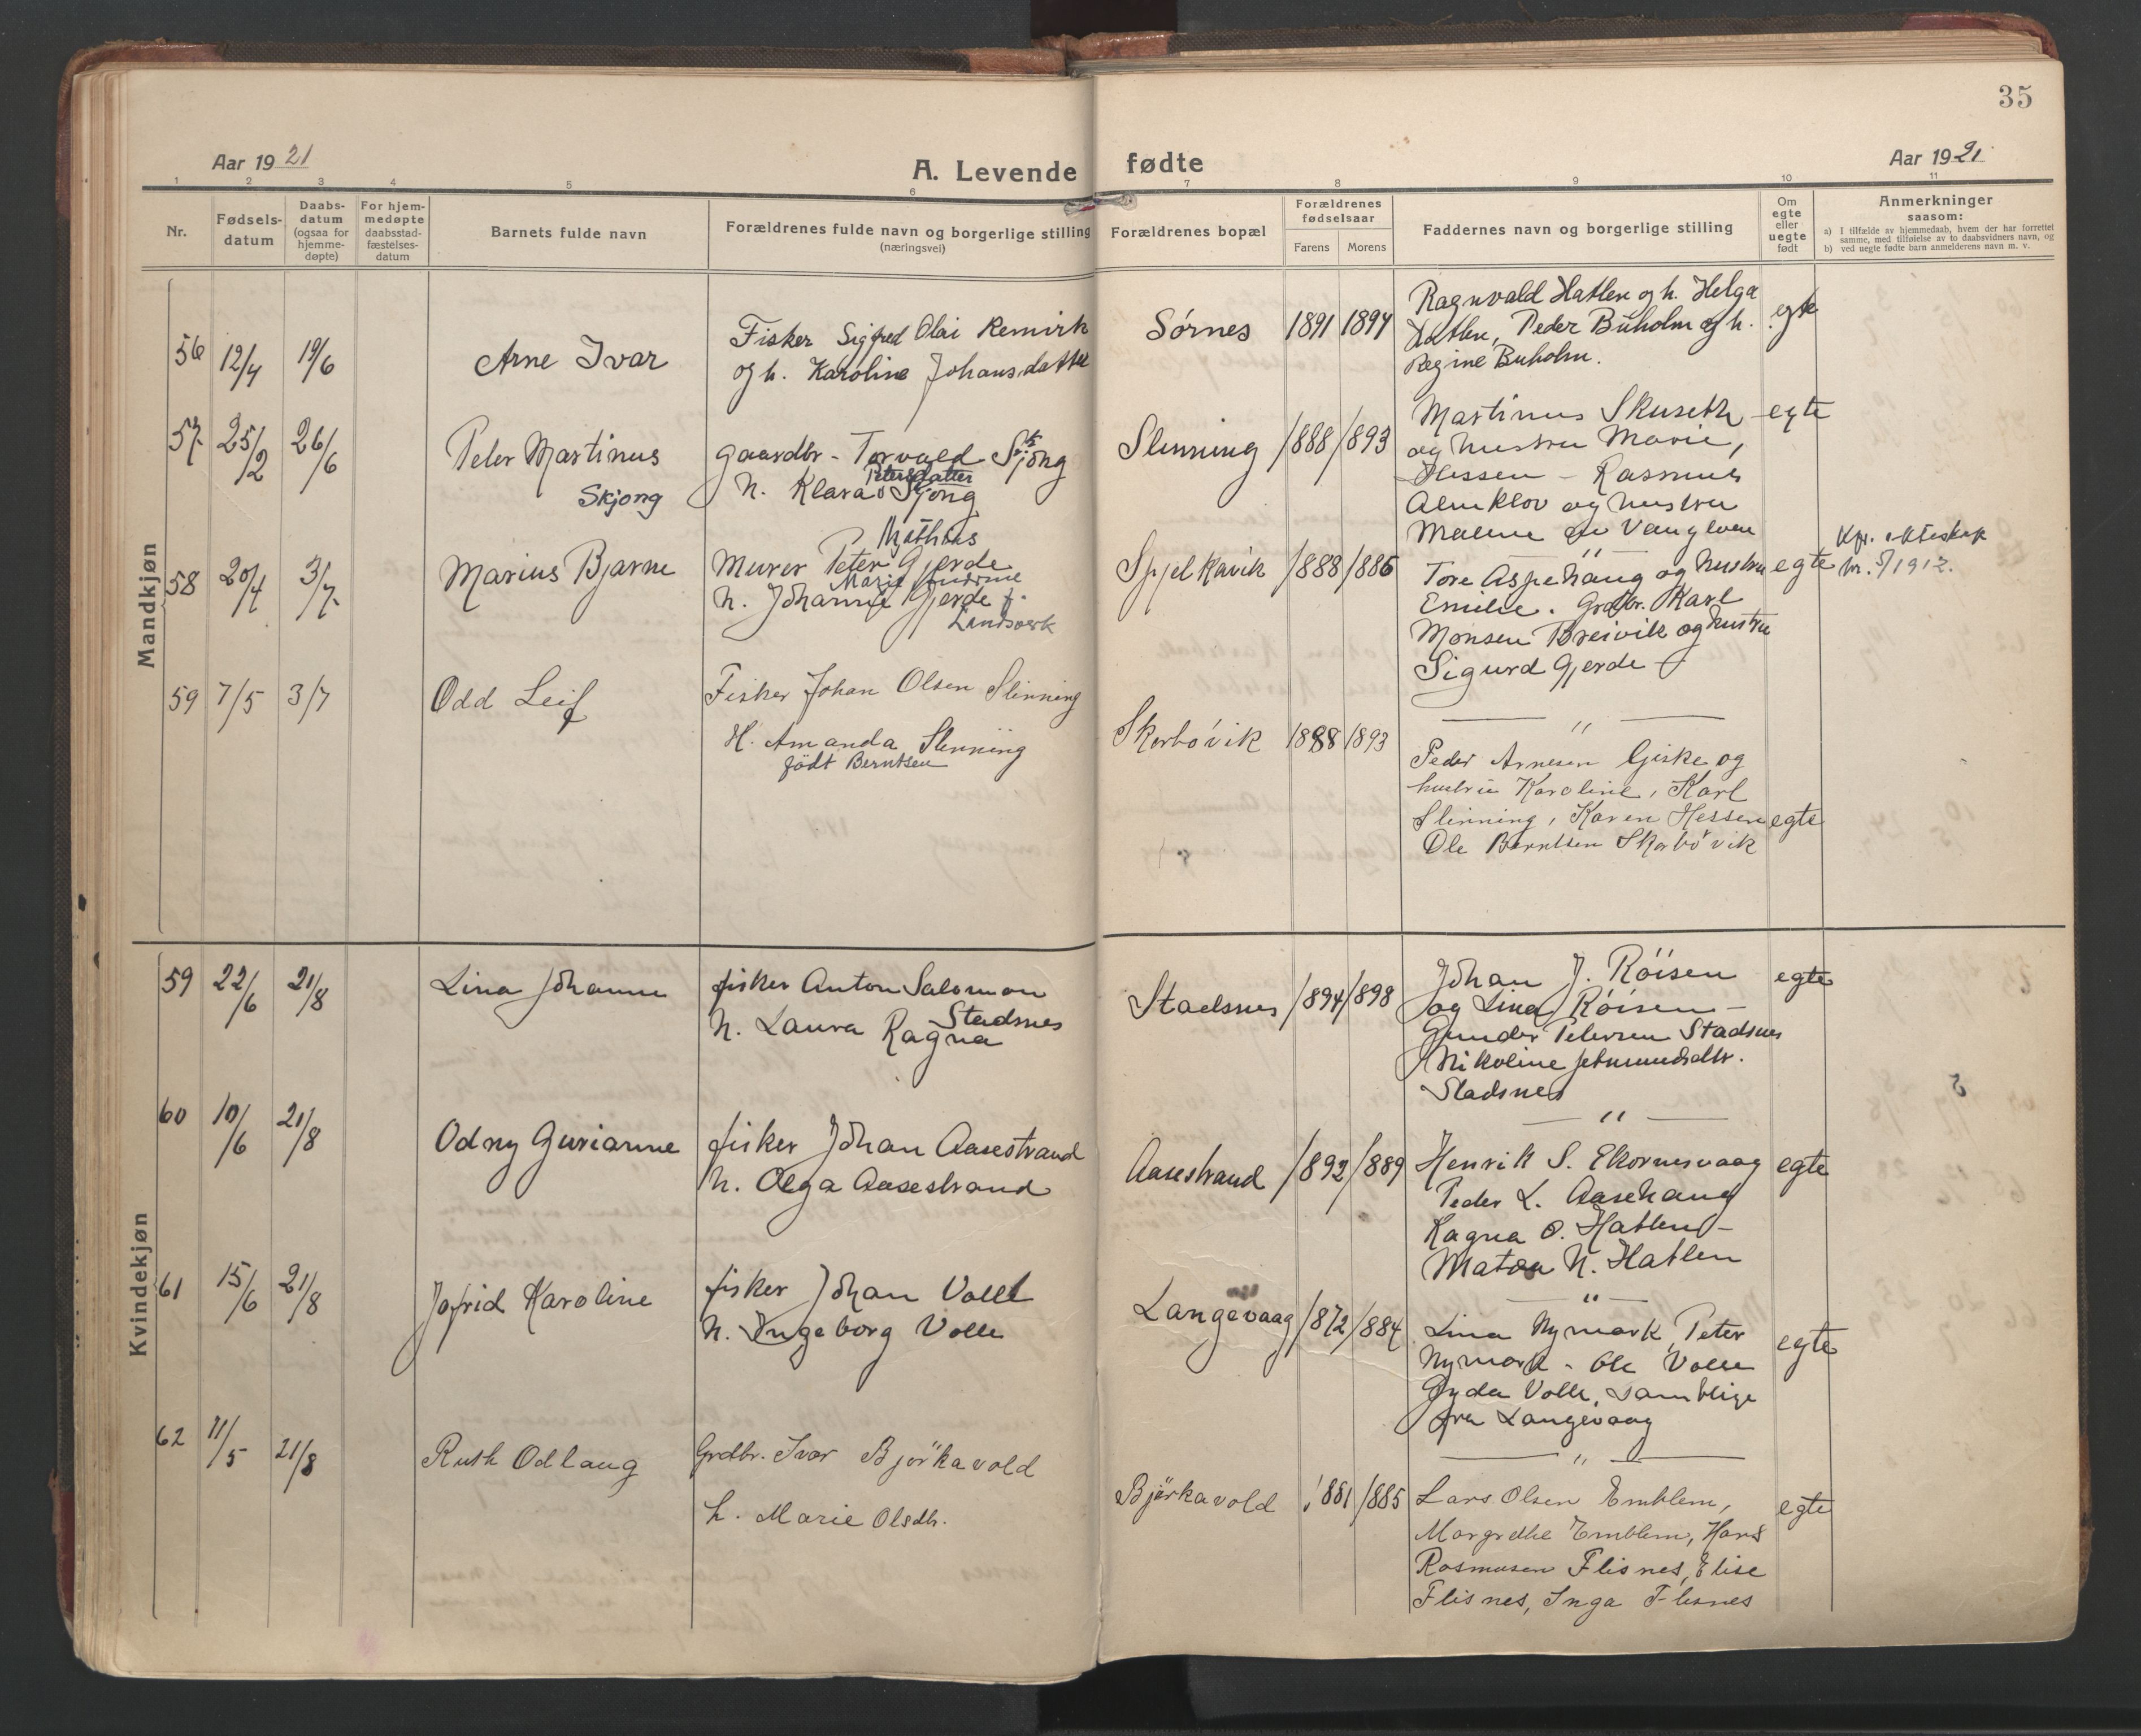 35
Aar 1921
A. Levende fødte
Aar 1921
1 2 3 4 5 6 7 8 9 10 11
Nr.
Fødsels-
datum
Daabs-
datum
(ogsaa for
hjemme-
døpte)
For hjem-
medøpte
daabsstad-
fæstelses-
datum
Barnets fulde navn
Forældrenes fulde navn og borgerlige stilling
(næringsvei)
Forældrenes bopæl
Forældrenes
fødselsaar
Farens Morens
Faddernes navn og borgerlige stilling
Om
egte
eller
uegte
født
Anmerkninger
saasom:
a) I tilfælde av hjemmedaab, hvem der har forrettet
samme, med tilføielse av to daabsvidners navn, og
b) ved uegte fødte barn anmelderens navn m. v.
Mandkjøn
56 12/4 19/6
Arne Ivar
Fisker Sigfred Olai Remirk
og h. Karoline Johansdatter
Sørnes 1891 1894
Ragnvald Hatlen og h. Helga
Hatlen, Peder Buholm og h.
Regine Buholm.
egte
57 25/2 26/6
Peter Martinus
Skjong
gaardbr - Torvald Skjong
Petersdatter
h. Klara Skjong
Slinning 1888 1893
Martinus Skuseth
og hustru Marie,
Hessen - Rasmus
Almklov og hustru
Malene
egte
58 20/4 3/7
Marius Bjarne
Mathias
Murer Peter Gjerde
Marie
h. Johanne Gjerde f.
Landsverk
Spjelkavik 1888 1886
"
Tore Aspehaug og hustru
Emilie. Grdbr. Karl
Monsen Breivik og hustru
Sigurd Gjerde
egte
Kfr. ekteskap
nr. 8/1912.
59 7/5 3/7
Odd Leif
Fisker Johan Olsen Slinning
H. Amanda Slinning
født Berntsen
Skorbøvik 1888 1893
"
Peder Arnesen Giske og
hustru Karoline, Karl
Slinning, Karen Hessen
Ole Berntsen Skorbøvik
egte
Kvindekjøn
59 22/6 21/8
Lina Johanne
fisker Anton Salomon
Stadsnes
h. Laura Ragna
Stadsnes 1894 1898
Johan J. Röisen
og Lina Röisen -
Gunder Petersen Stadsnes
Nikoline
Stadsnes
egte
60 10/6 21/8
Odny Gurianne
fisker Johan Aasestrand
h. Olga Aasestrand
Aasestrand 1892 1889
"
Henrik S. Ekornesvaag
Peder L. Aasehaug
Ragna O. Hatlen -
Matea N. Hatlen
egte
61 15/6 21/8
Jofrid Karoline
fisker Johan Volle
h. Ingeborg Volle
Langevaag 1872 1884
"
Lina Nymark, Peter
Nymark - Ole Volle
Gyda Volle, samtlige
fra Langevaag
egte
62 11/5 21/8
Ruth Odlaug
Grdbr. Ivar Bjørkavold
h. Marie Olsdtr.
Bjørkavold 1881 1885
"
Lars Olsen Emblem,
Margrethe Emblem, Hans
Rasmusen Flisnes, Elise
Flisnes, Inga Flisnes
egte